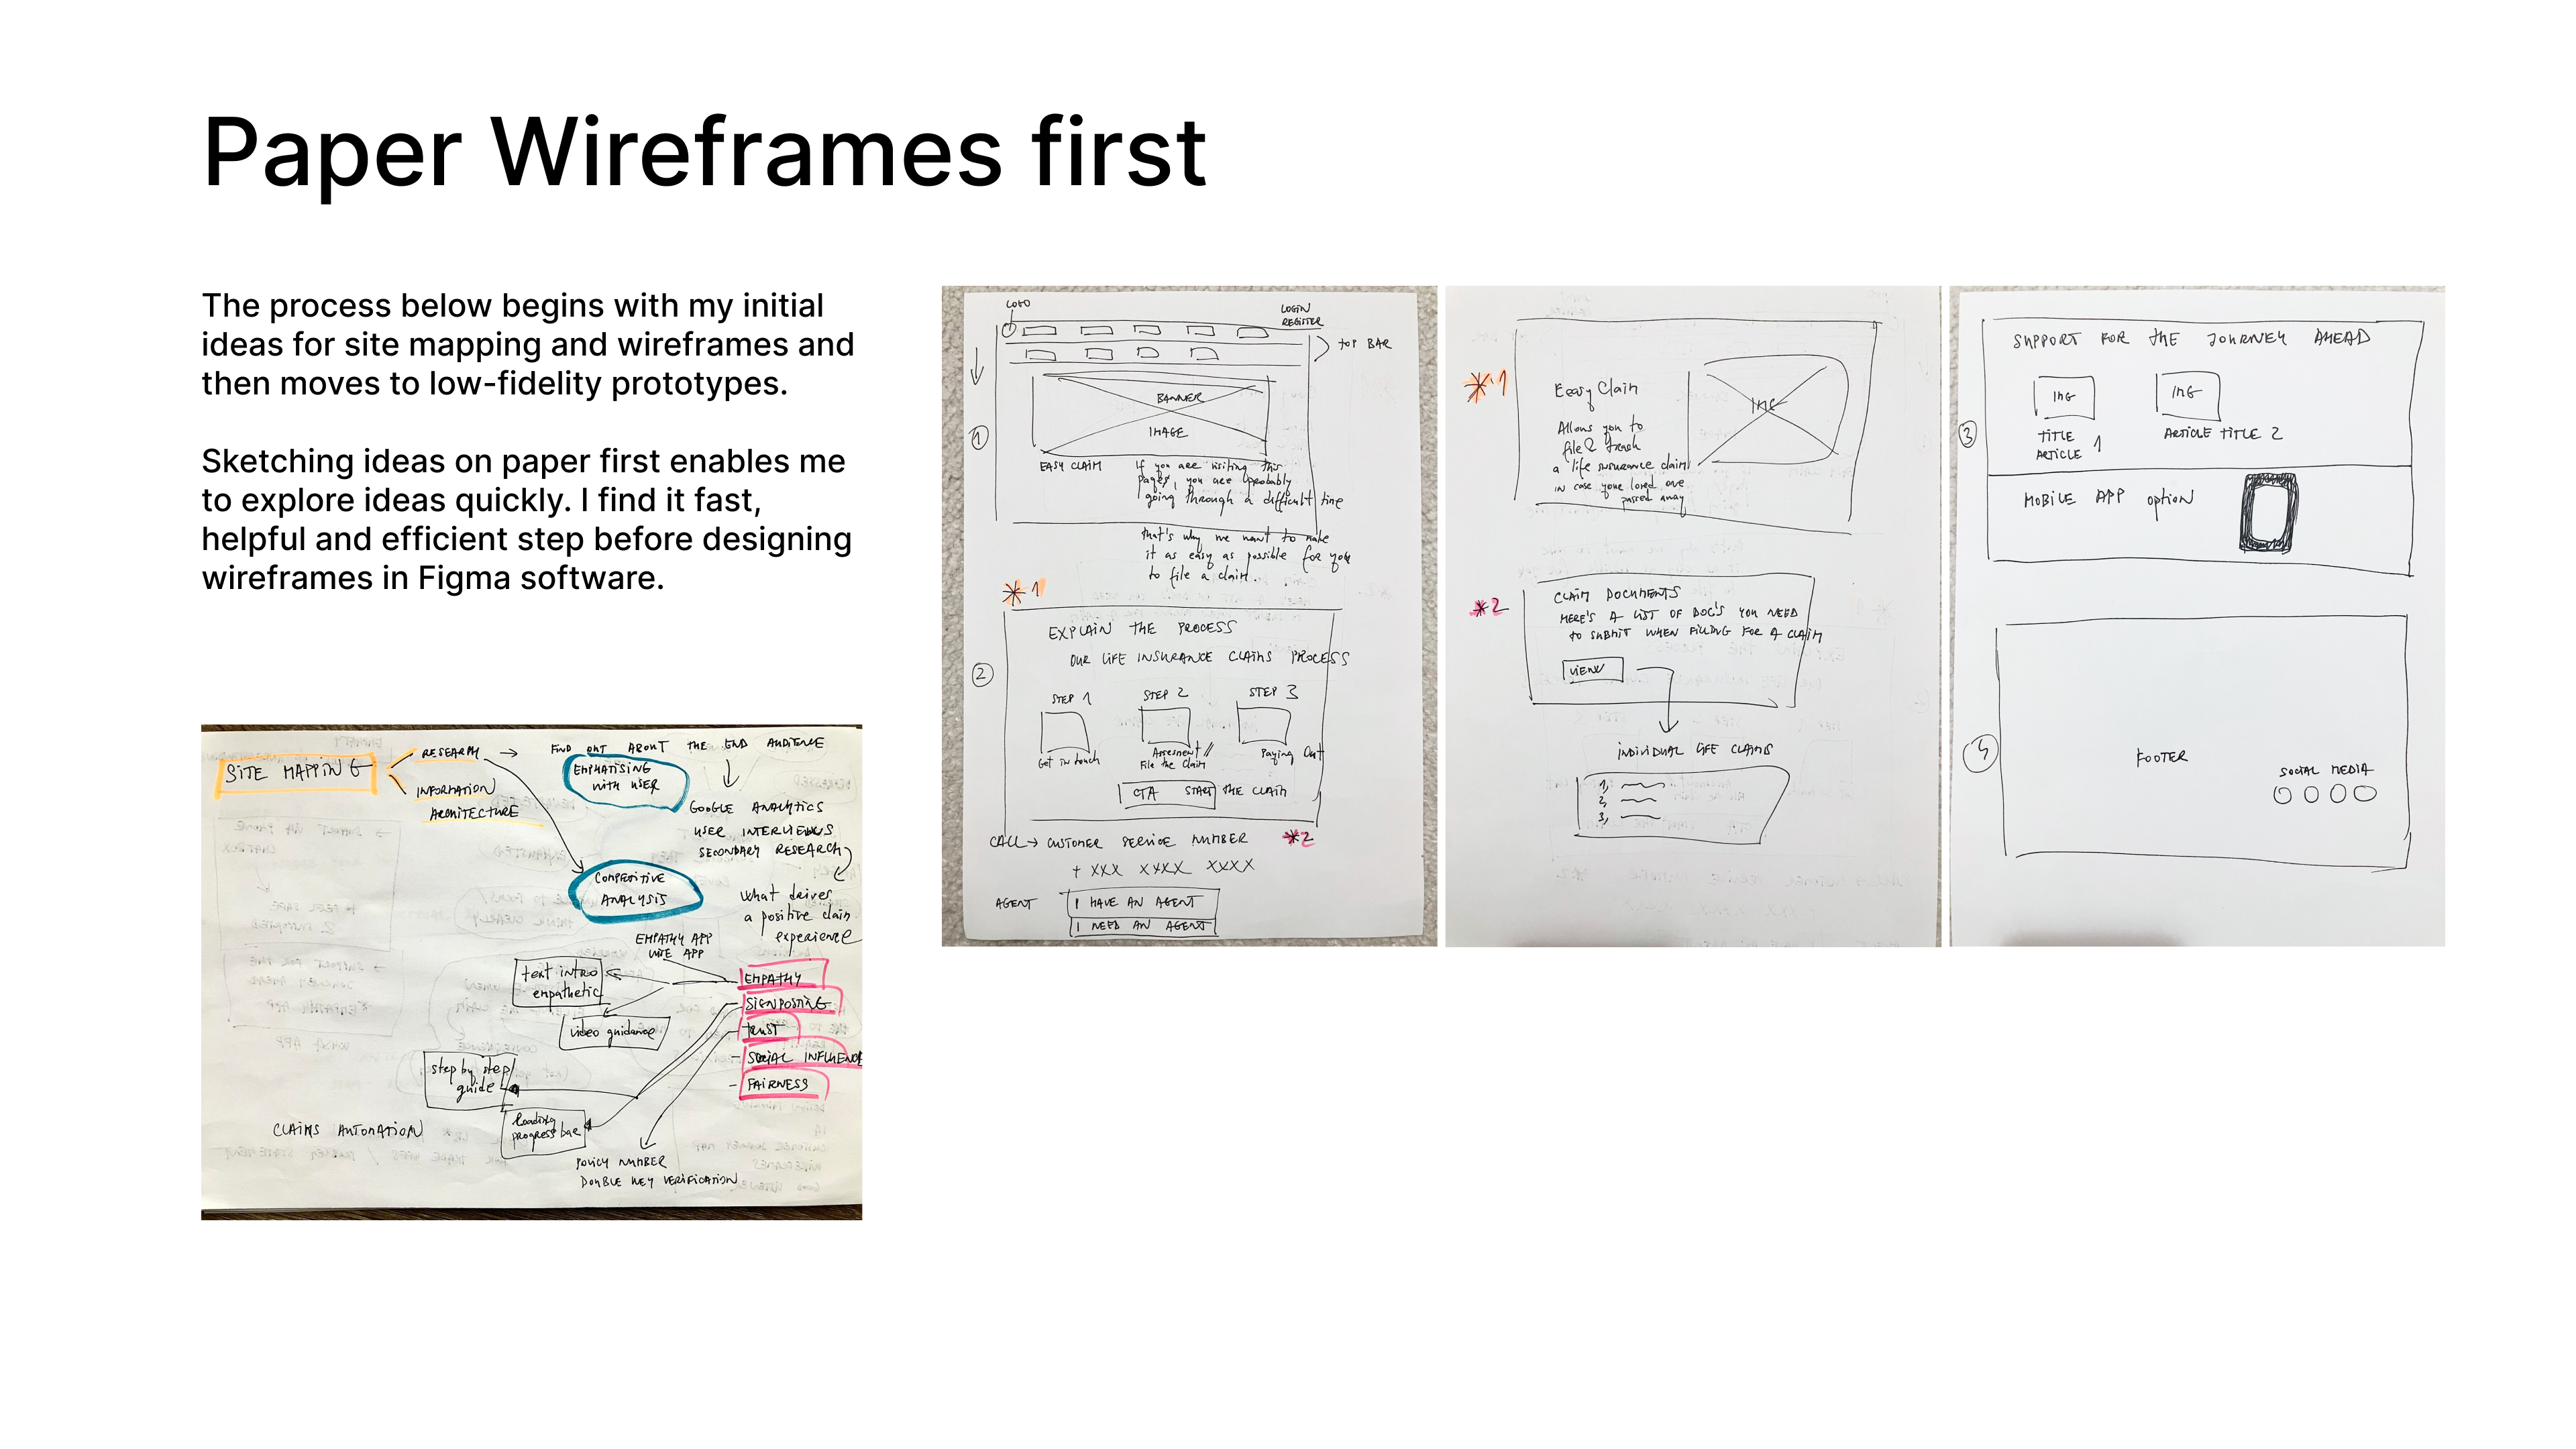 Paper Wireframes first
The process below begins with my initial
ideas for site mapping and wireframes and
then moves to low-fidelity prototypes.
Sketching ideas on paper first enables me
to explore ideas quickly. I find it fast,
helpful and efficient step before designing
wireframes in Figma software.
SITE MAPPING
RESEARCH
FIND OUT ABOUT THE END AUDIENCE
EMPHATISING
WITH USER
INFORMATION
ARCHITECTURE
GOOGLE ANALYTICS
USER INTERVIEWS
SECONDARY RESEARCH
COMPETITIVE
ANALYSIS
What drives
a positive claim
experience
EMPATHY APP
text intro
empathetic
video guidance
EMPATHY
SIGNPOSTING
TRUST
- SOCIAL INFLUENCE
- FAIRNESS
step by step
guide
loading
progress bar
CLAIMS AUTOMATION
POLICY NUMBER
DOUBLE KEY VERIFICATION
LOGO
LOGIN
REGISTER
TOP BAR
1
BANNER
IMAGE
EASY CLAIM
If you are visiting this
pages, you are probably
going through a difficult time
that's why we want to make
it as easy as possible for you
to file a claim.
*1
EXPLAIN THE PROCESS
OUR LIFE INSURANCE CLAIMS PROCESS
2
STEP 1
STEP 2
STEP 3
Get in touch
Assesment //
File the Claim
Paying Out
CTA START THE CLAIM
CALL → CUSTOMER SERVICE NUMBER
*2
+ XXX XXXX XXXX
AGENT
I HAVE AN AGENT
I NEED AN AGENT
*1
Eeasy Claim
IMG
Allows you to
file & track
a life insurance claim
in case your loved one
passed away
*2
CLAIM DOCUMENTS
HERE'S A LIST OF DOC'S YOU NEED
TO SUBMIT WHEN FILLING FOR A CLAIM
VIEW
INDIVIDUAL LIFE CLAIMS
1,
2,
3,
SUPPORT FOR THE JOURNEY AHEAD
IMG
IMG
3
TITLE
ARTICLE 1
ARTICLE TITLE 2
MOBILE APP option
FOOTER
SOCIAL MEDIA